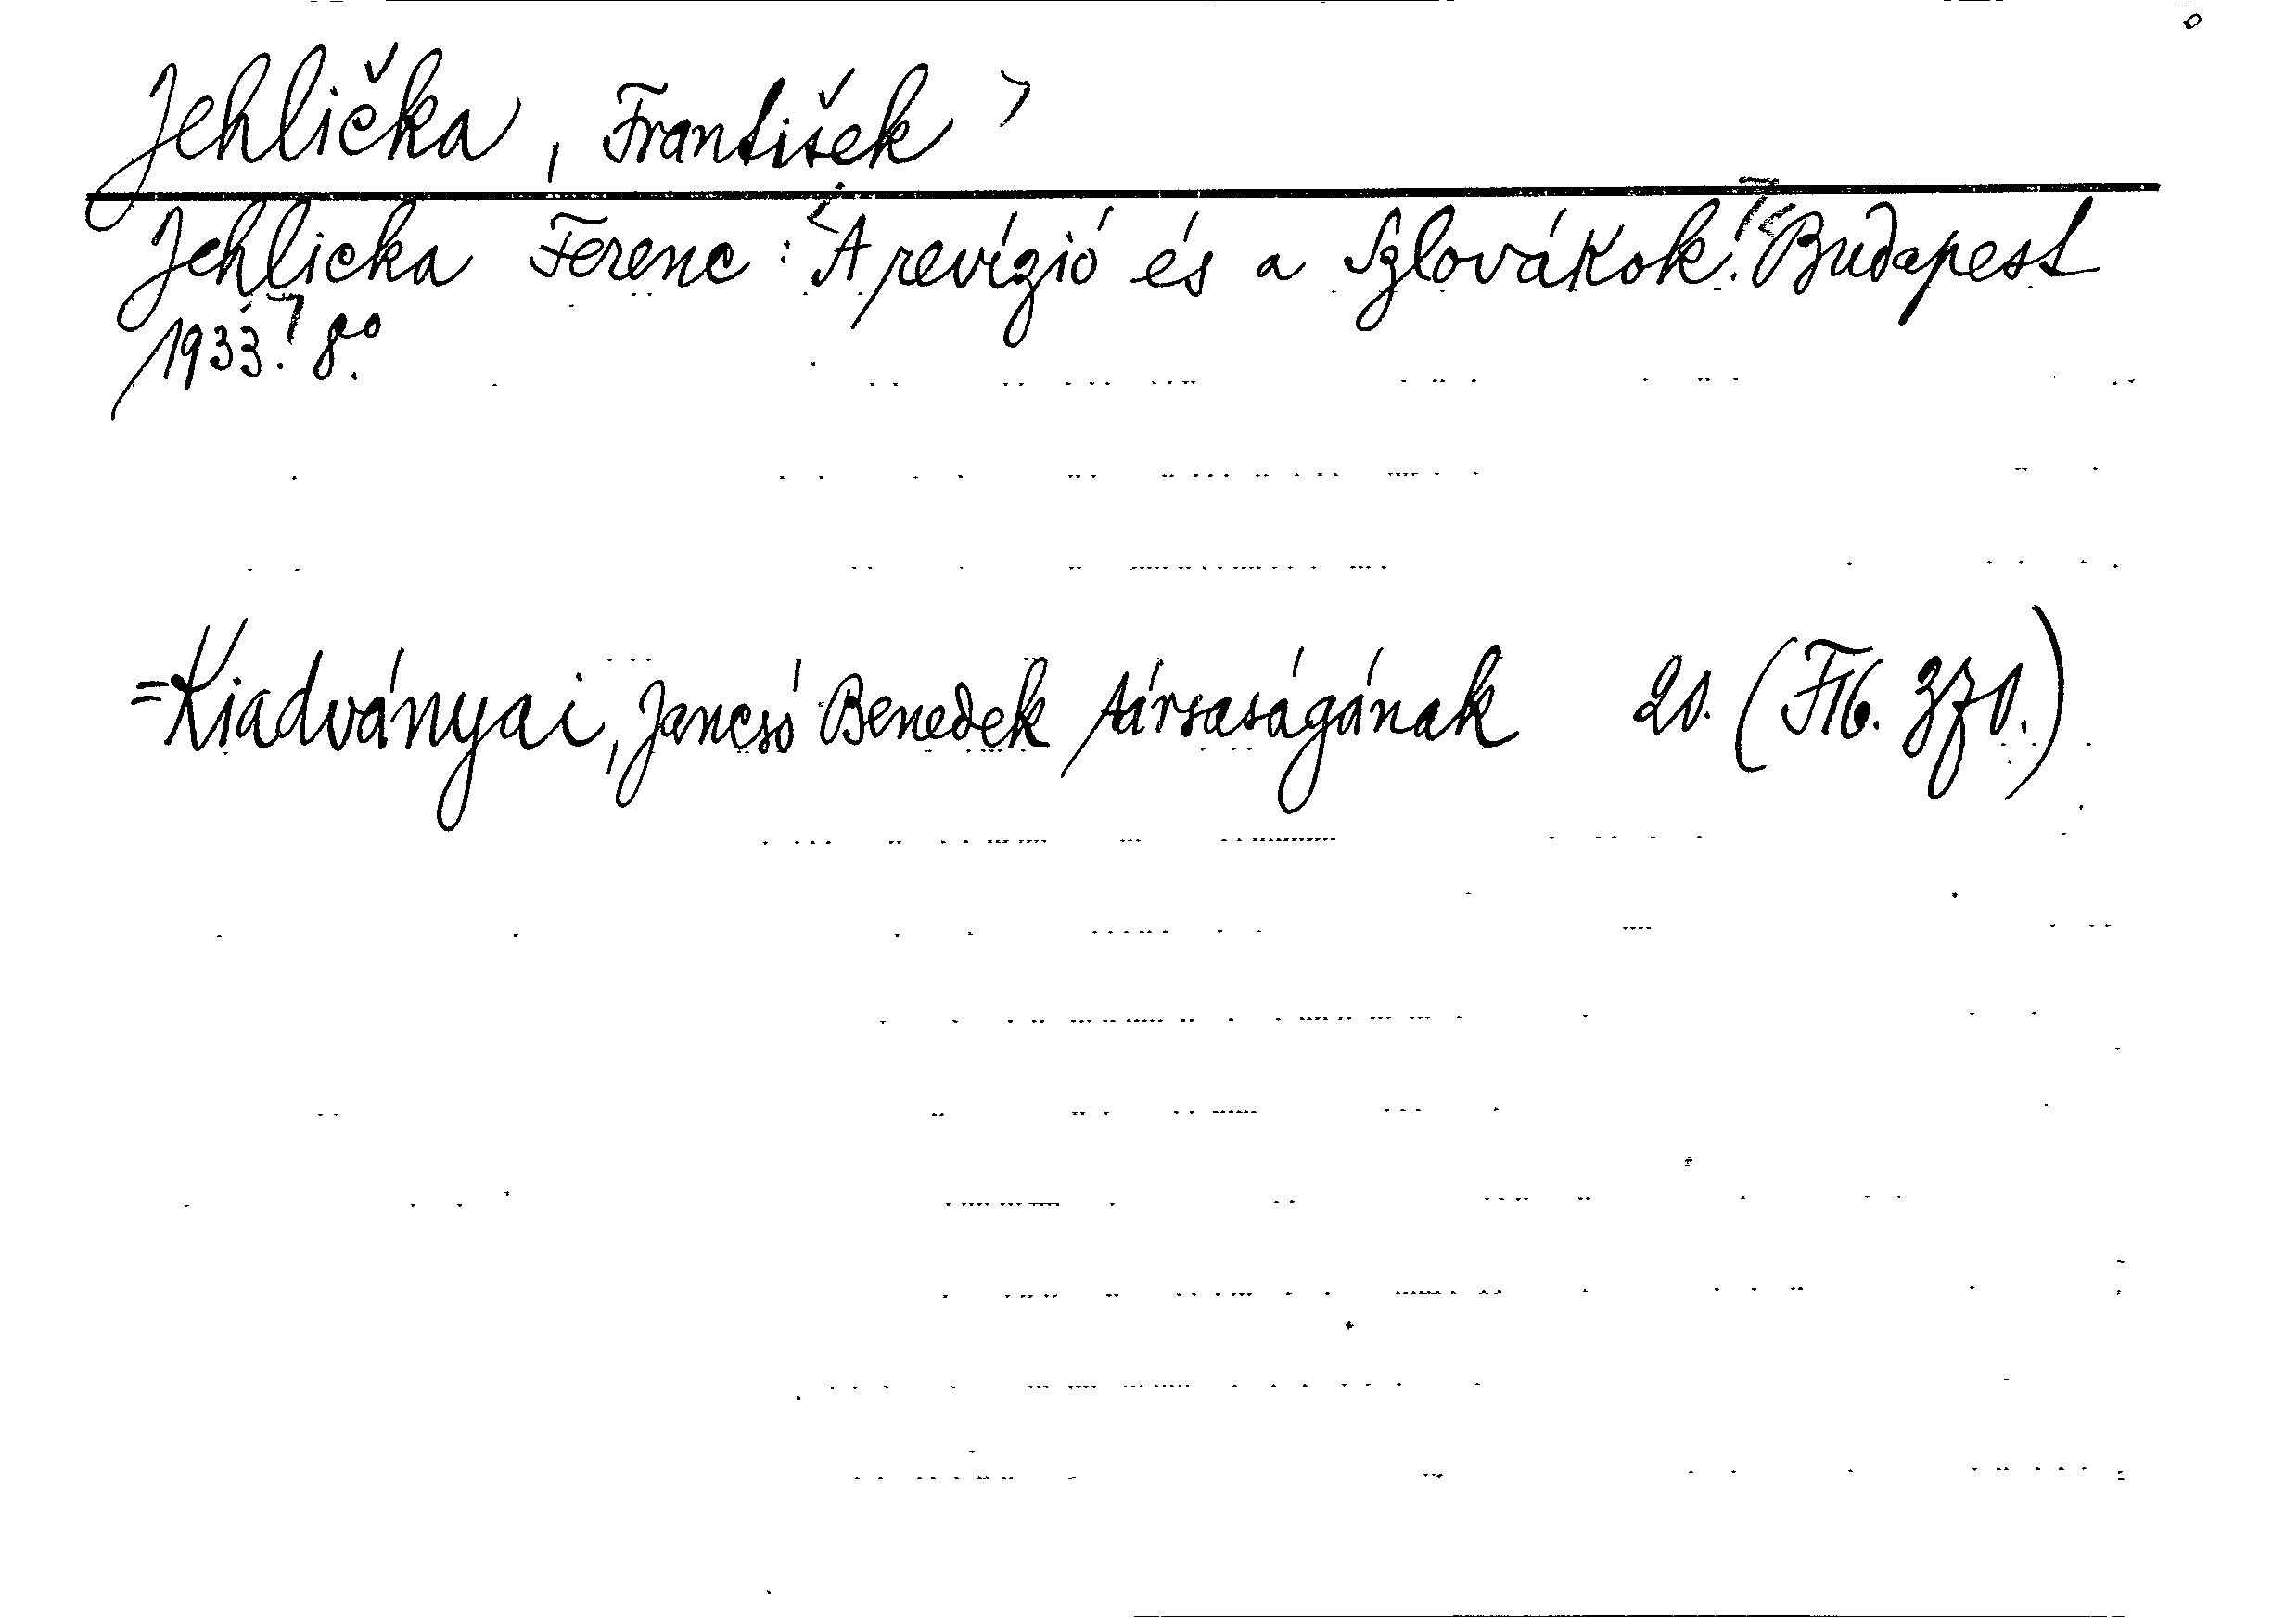 Jehlička, František
Jehlicka Ferenc: A revízió és a Szlovákok. Budapest
1933. 8°.
=Kiadványai, Jancsó Benedek társaságának 20. (F16. 370.)